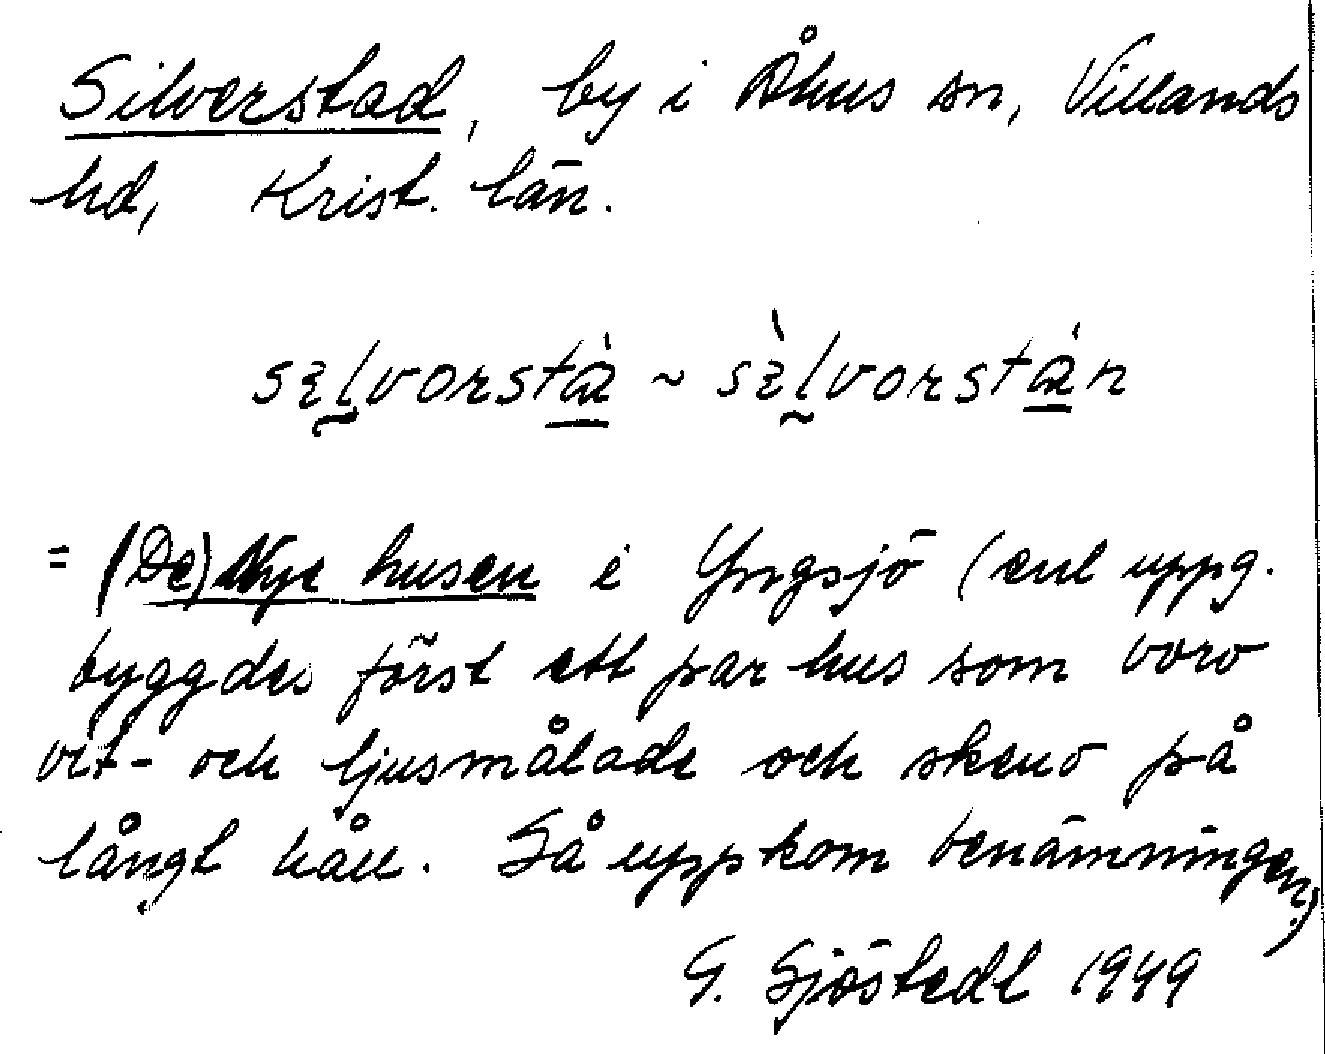 Silverstad, by i Åhus sn, Villands
hd, Krist. län.
sɛlvorstà ~ sɛ̀lvorstán
= (De) Nye husen i Yngsjö (enl uppg.
byggdes först ett par hus som voro
vit- och ljusmålade och skeno på
långt håll. Så uppkom benämningen.)
G. Sjöstedt 1949